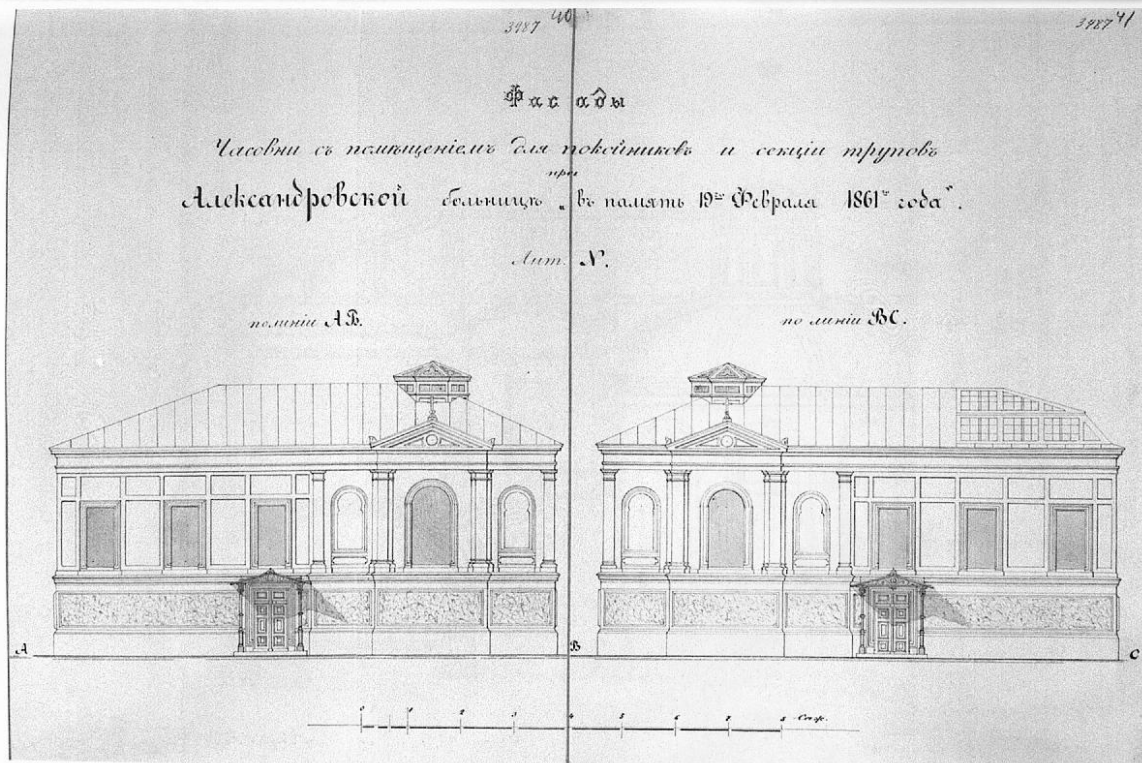 3987 40
3987 41
Фасады
Часовни съ помѣщеніемъ для покойниковъ и секціи труповъ
при
Александровской больницѣ „въ память 19го Февраля 1861го года“.
Лит. N.
по линіи АВ.
по линіи ВС.
А
В
С
0 1 2 3 4 5 6 7 8 Саж.